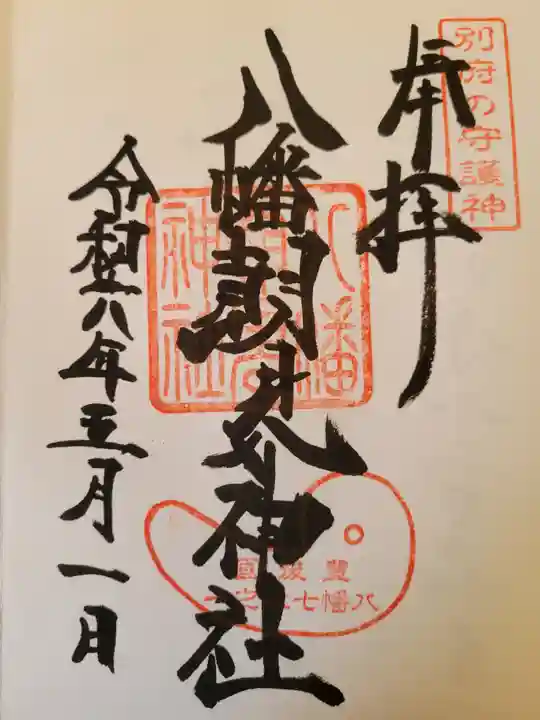 別府の守護神
奉拝
八幡朝見神社
八幡
神社
豊後國
八幡七社之一
令和六年五月一日